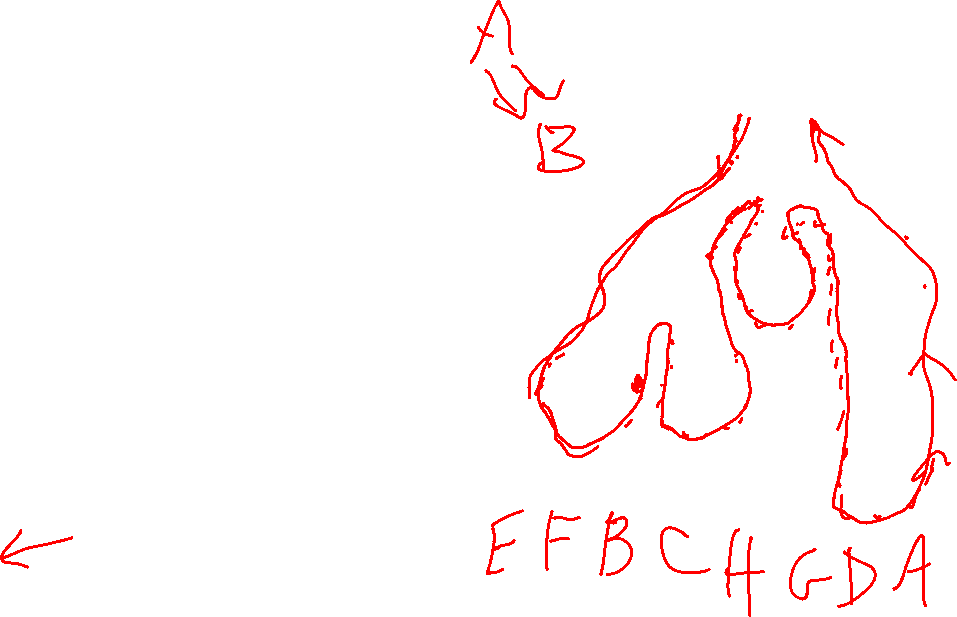 A
B
E F B C H G D A